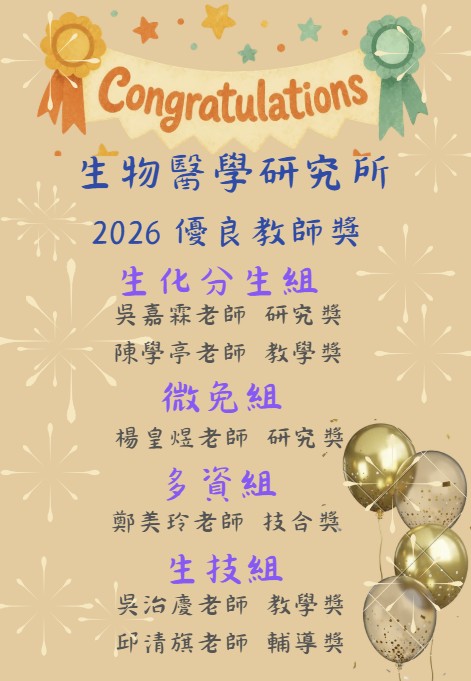 Congratulations
生物醫學研究所
2026 優良教師獎
生化分生組
吳嘉霖老師 研究獎
陳學亭老師 教學獎
微免組
楊皇煜老師 研究獎
多資組
鄭美玲老師 技合獎
生技組
吳治慶老師 教學獎
邱清旗老師 輔導獎